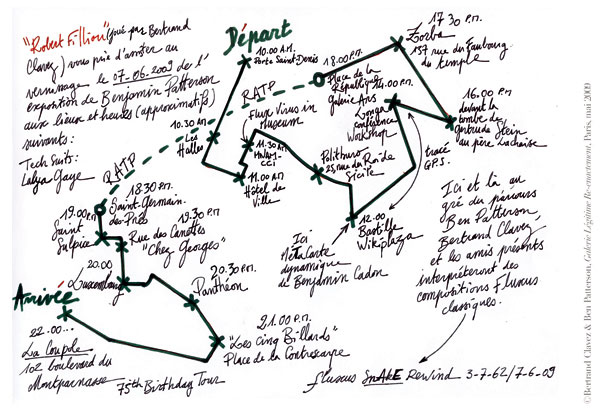 "Robert Filliou" (joué par Bertrand
Clavez) vous prie d'assister au
vernissage le 07-06-2009 de l'
exposition de Benjamin Patterson
aux lieux et heures (approximatifs)
suivants:
Tech Suits:
Lalya Gaye
Départ
10.00 A.M.
Porte Saint-Denis
10.30 AM
Les
Halles
11.00 AM
Hôtel de
Ville
11.30 AM
MNAM-
CCI
Flux Virus in
Museum
RATP
Politburo
25, rue du Roi de
Sicile
12.00
Bastille
Wikiplaza
Ici
MétaCarte
dynamique
de Benjamin Cadon
14.00 P.M.
Longa
conférence
Workshop
tracé
G.P.S.
16.00 P.M.
devant la
tombe de
gertrude Stein
au père Lachaise
17 30 P.M.
Zorba
137 rue du Faubourg
du temple
18.00 P.M.
Place de la
République
galerie Ars
RATP
18.30 P.M.
Saint-Germain
des Prés
19.00 P.M.
Saint
Sulpice
19.30 P.M.
Rue des Canettes
"Chez Georges"
20.00
Luxembourg
20.30 P.M.
Panthéon
21.00 P.M.
"Les Cinq Billards"
Place de la Contrescarpe
Arrivée
22.00...
La Coupole
102 boulevard du
Montparnasse
75th Birthday Tour
Ici et là au
gré du parcours
Ben Patterson,
Bertrand Clavez
et les amis présents
interpréteront des
compositions Fluxus
classiques.
fluxus SnAKE Rewind 3-7-62/7-6-09
© Bertrand Clavez & Ben Patterson, Galerie Légitime Re-enactement, Paris, mai 2009